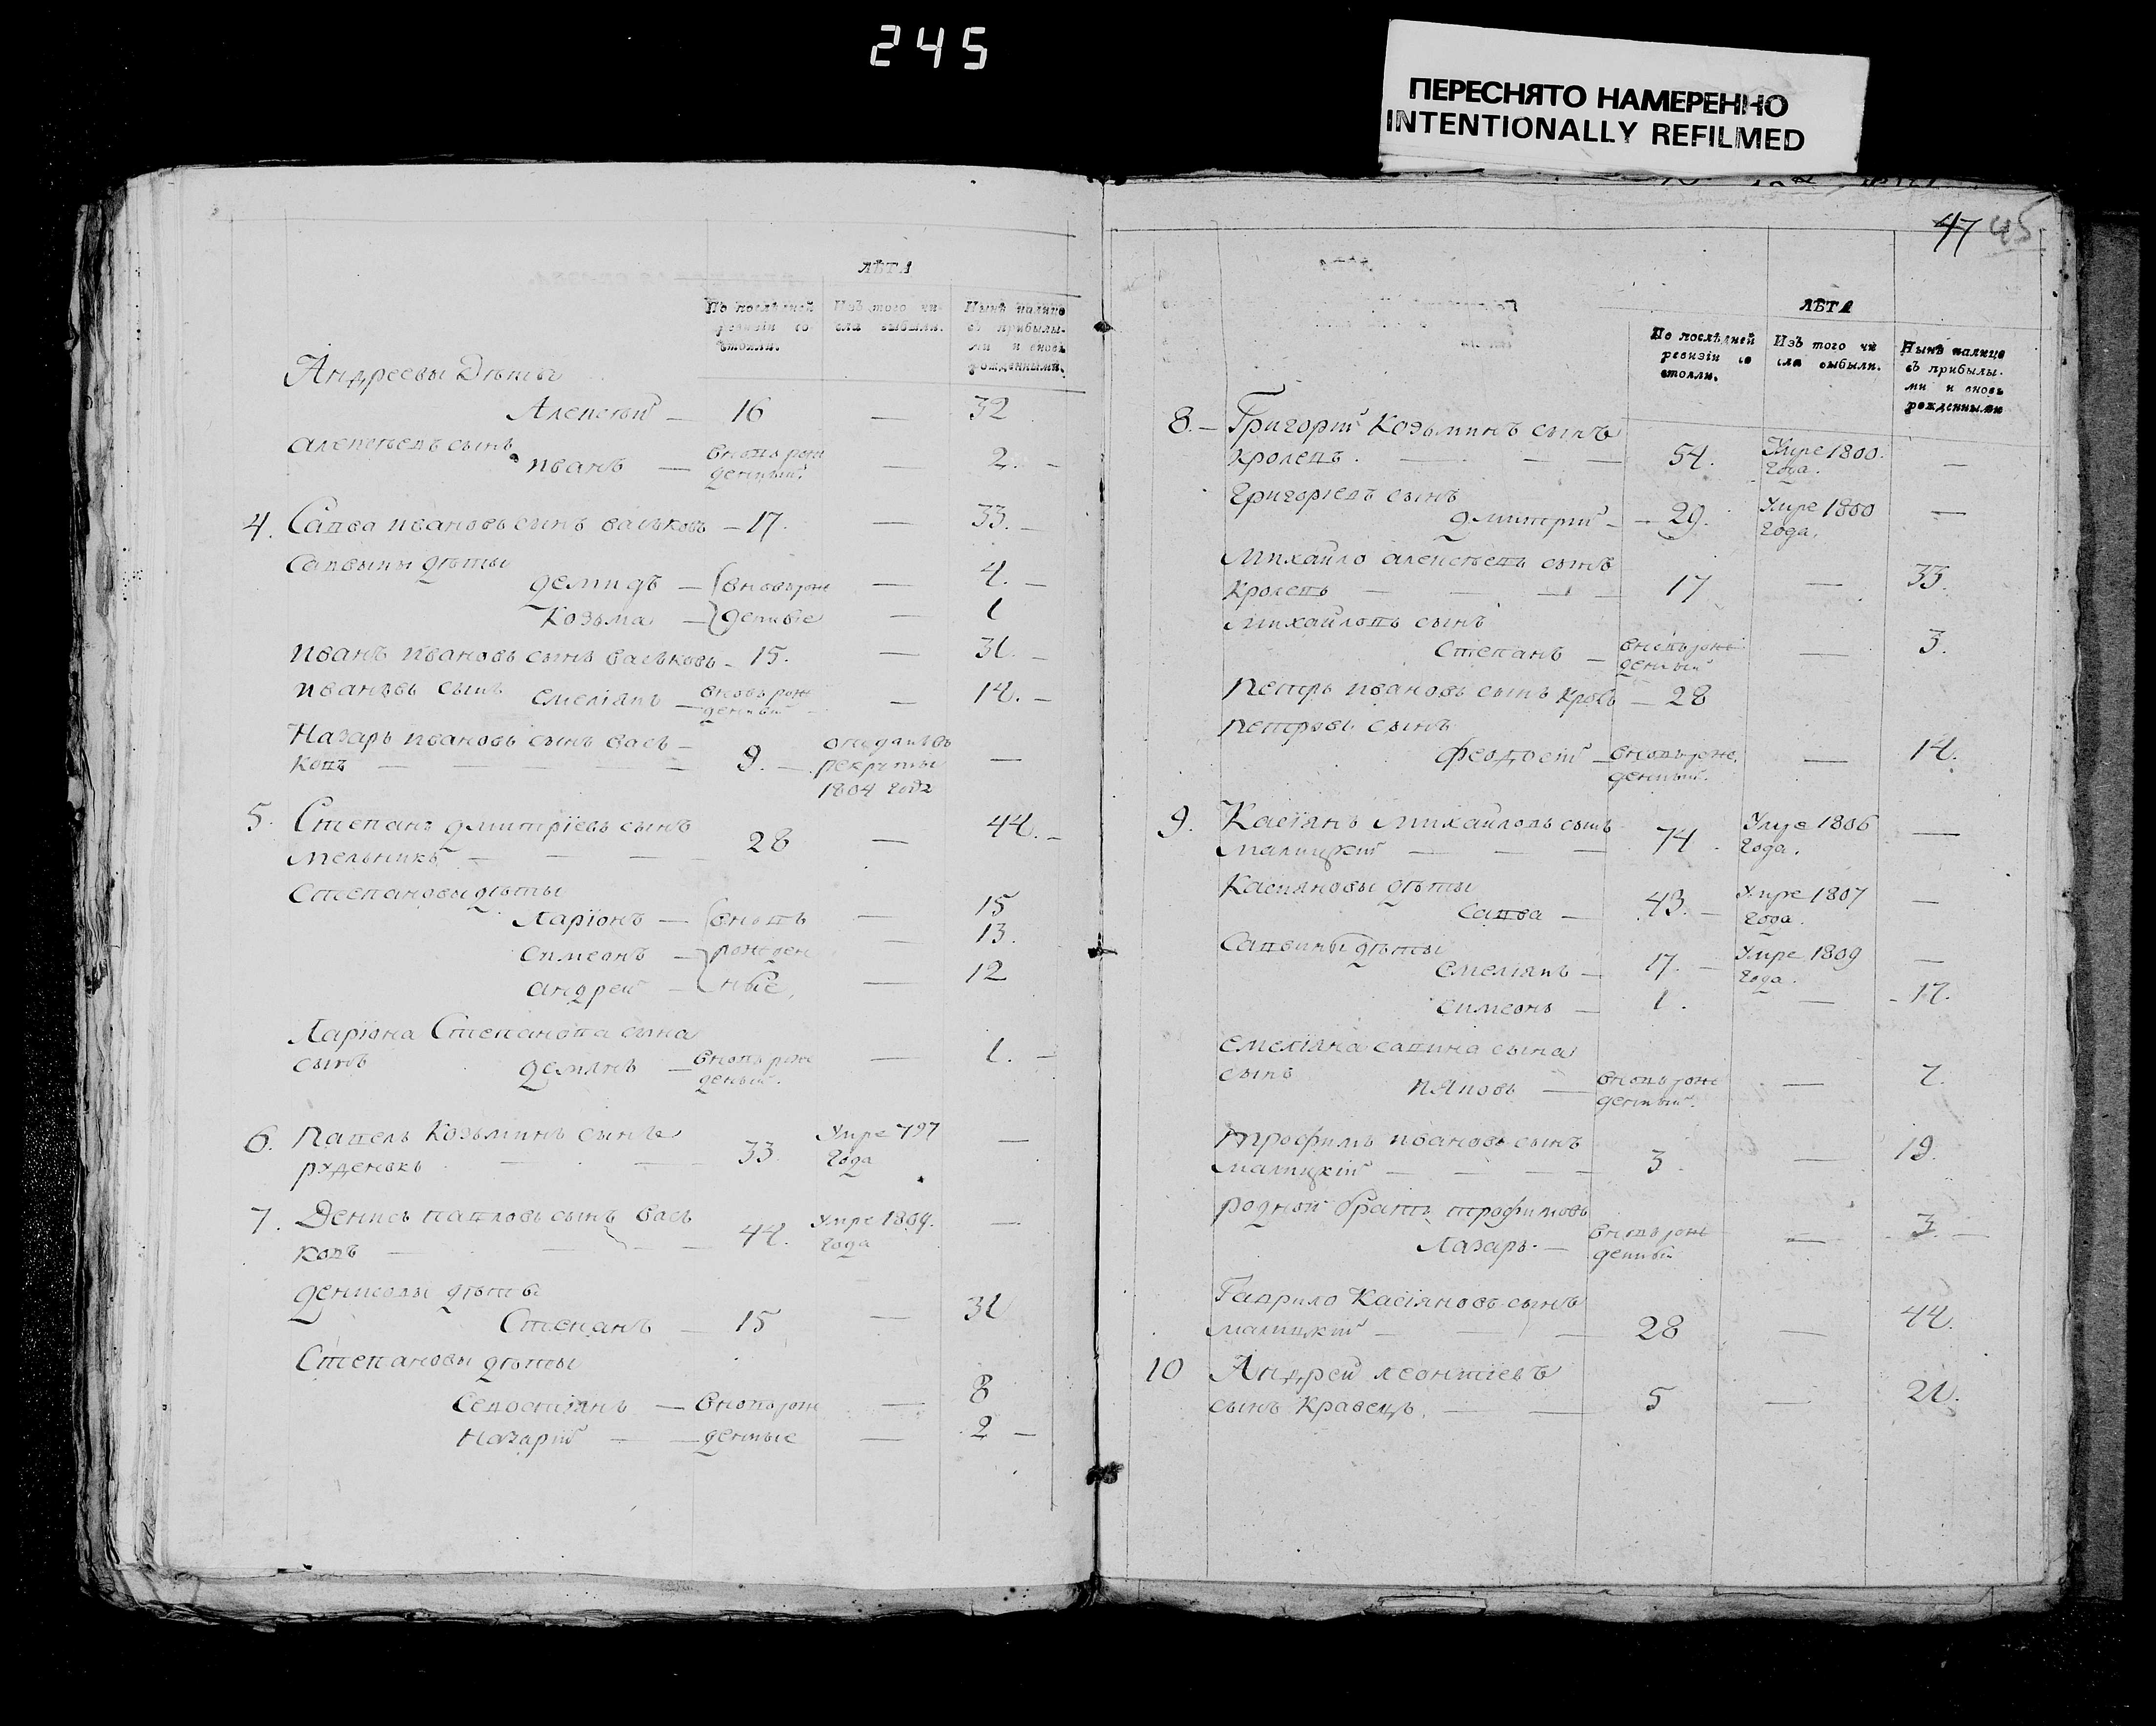 245
ПЕРЕСНЯТО НАМЕРЕННО
INTENTIONALLY REFILMED
ЛѢТА
По послѣдней ревизіи состояли.
Изъ того числа выбыли.
Нынѣ налицо съ прибылыми и вновь рожденными.
Андреевы Дѣти
Алексѣй — 16 — 32
Алексѣевъ сынъ
иванъ — вновь рож
денный. — 2. —
4. Савва ивановъ сынъ васьковъ — 17. — 33. —
Саввины дѣти
демидъ — вновь рож — 4. —
Козьма — денные — 1
иванъ ивановъ сынъ васьковъ — 15. — 31. —
ивановъ сынъ емеліянъ — вновь рож
денный — 14. —
Назаръ ивановъ сынъ вась —
ковъ — 9. — отданъ въ
рекруты
1804 года —
5. Степанъ дмитріевъ сынъ
мельникъ — 28 — 44. —
Степановы дѣти
Ларіонъ — вновь — 15
симеонъ — рожден — 13.
андрей — ные, — 12
Ларіона Степанова сына
сынъ демянъ — вновь рож
деный. — 1. —
6. Павелъ Козьминъ сынъ
руденькъ — 33 Умре 797
года —
7. Денисъ павловъ сынъ вась
ковъ — 44. Умре 1809.
года —
денисовы дѣти
Степанъ — 15 — 31
Степановы дѣти
Севостіянъ — вновь рож — 8
Назарій — денные — 2 —
47 45
ЛѢТА
По послѣдней ревизіи состояли.
Изъ того числа выбыли.
Нынѣ налицо съ прибылыми и вновь рожденными
8. — Григорій Козьминъ сынъ
кролевъ . — 54. Умре 1800.
года. —
Григоріевъ сынъ
дмитрій — 29. Умре 1800
года. —
Михайло алексѣевъ сынъ
кролевъ — 17 — 33.
Михайловъ сынъ
Степанъ — вновь рож
денный — 3.
Петръ ивановъ сынъ — 28
петровъ сынъ
феодосій — вновь рож.
денный. — 14.
9. Касіянъ Михайловъ сынъ
малицкій — 74. Умре 1806
года. —
Касіяновы дѣти
Савва — 43. — Умре 1807
года. —
Саввины дѣти
емеліянъ — 17. — Умре 1809
года. —
симеонъ — 1. — 17.
емеліяна савина сына
сынъ
ияковъ — вновь рож
денный. — 7.
трофимъ ивановъ сынъ
малицкій — 3. — 19.
родной братъ трофимовъ
Лазарь. — вновь рож
денный — 3. —
Гаврило Касіяновъ сынъ
малицкій — 28 — 44.
10 Андрей леонтіевъ
сынъ Кравецъ. — 5 — 21.